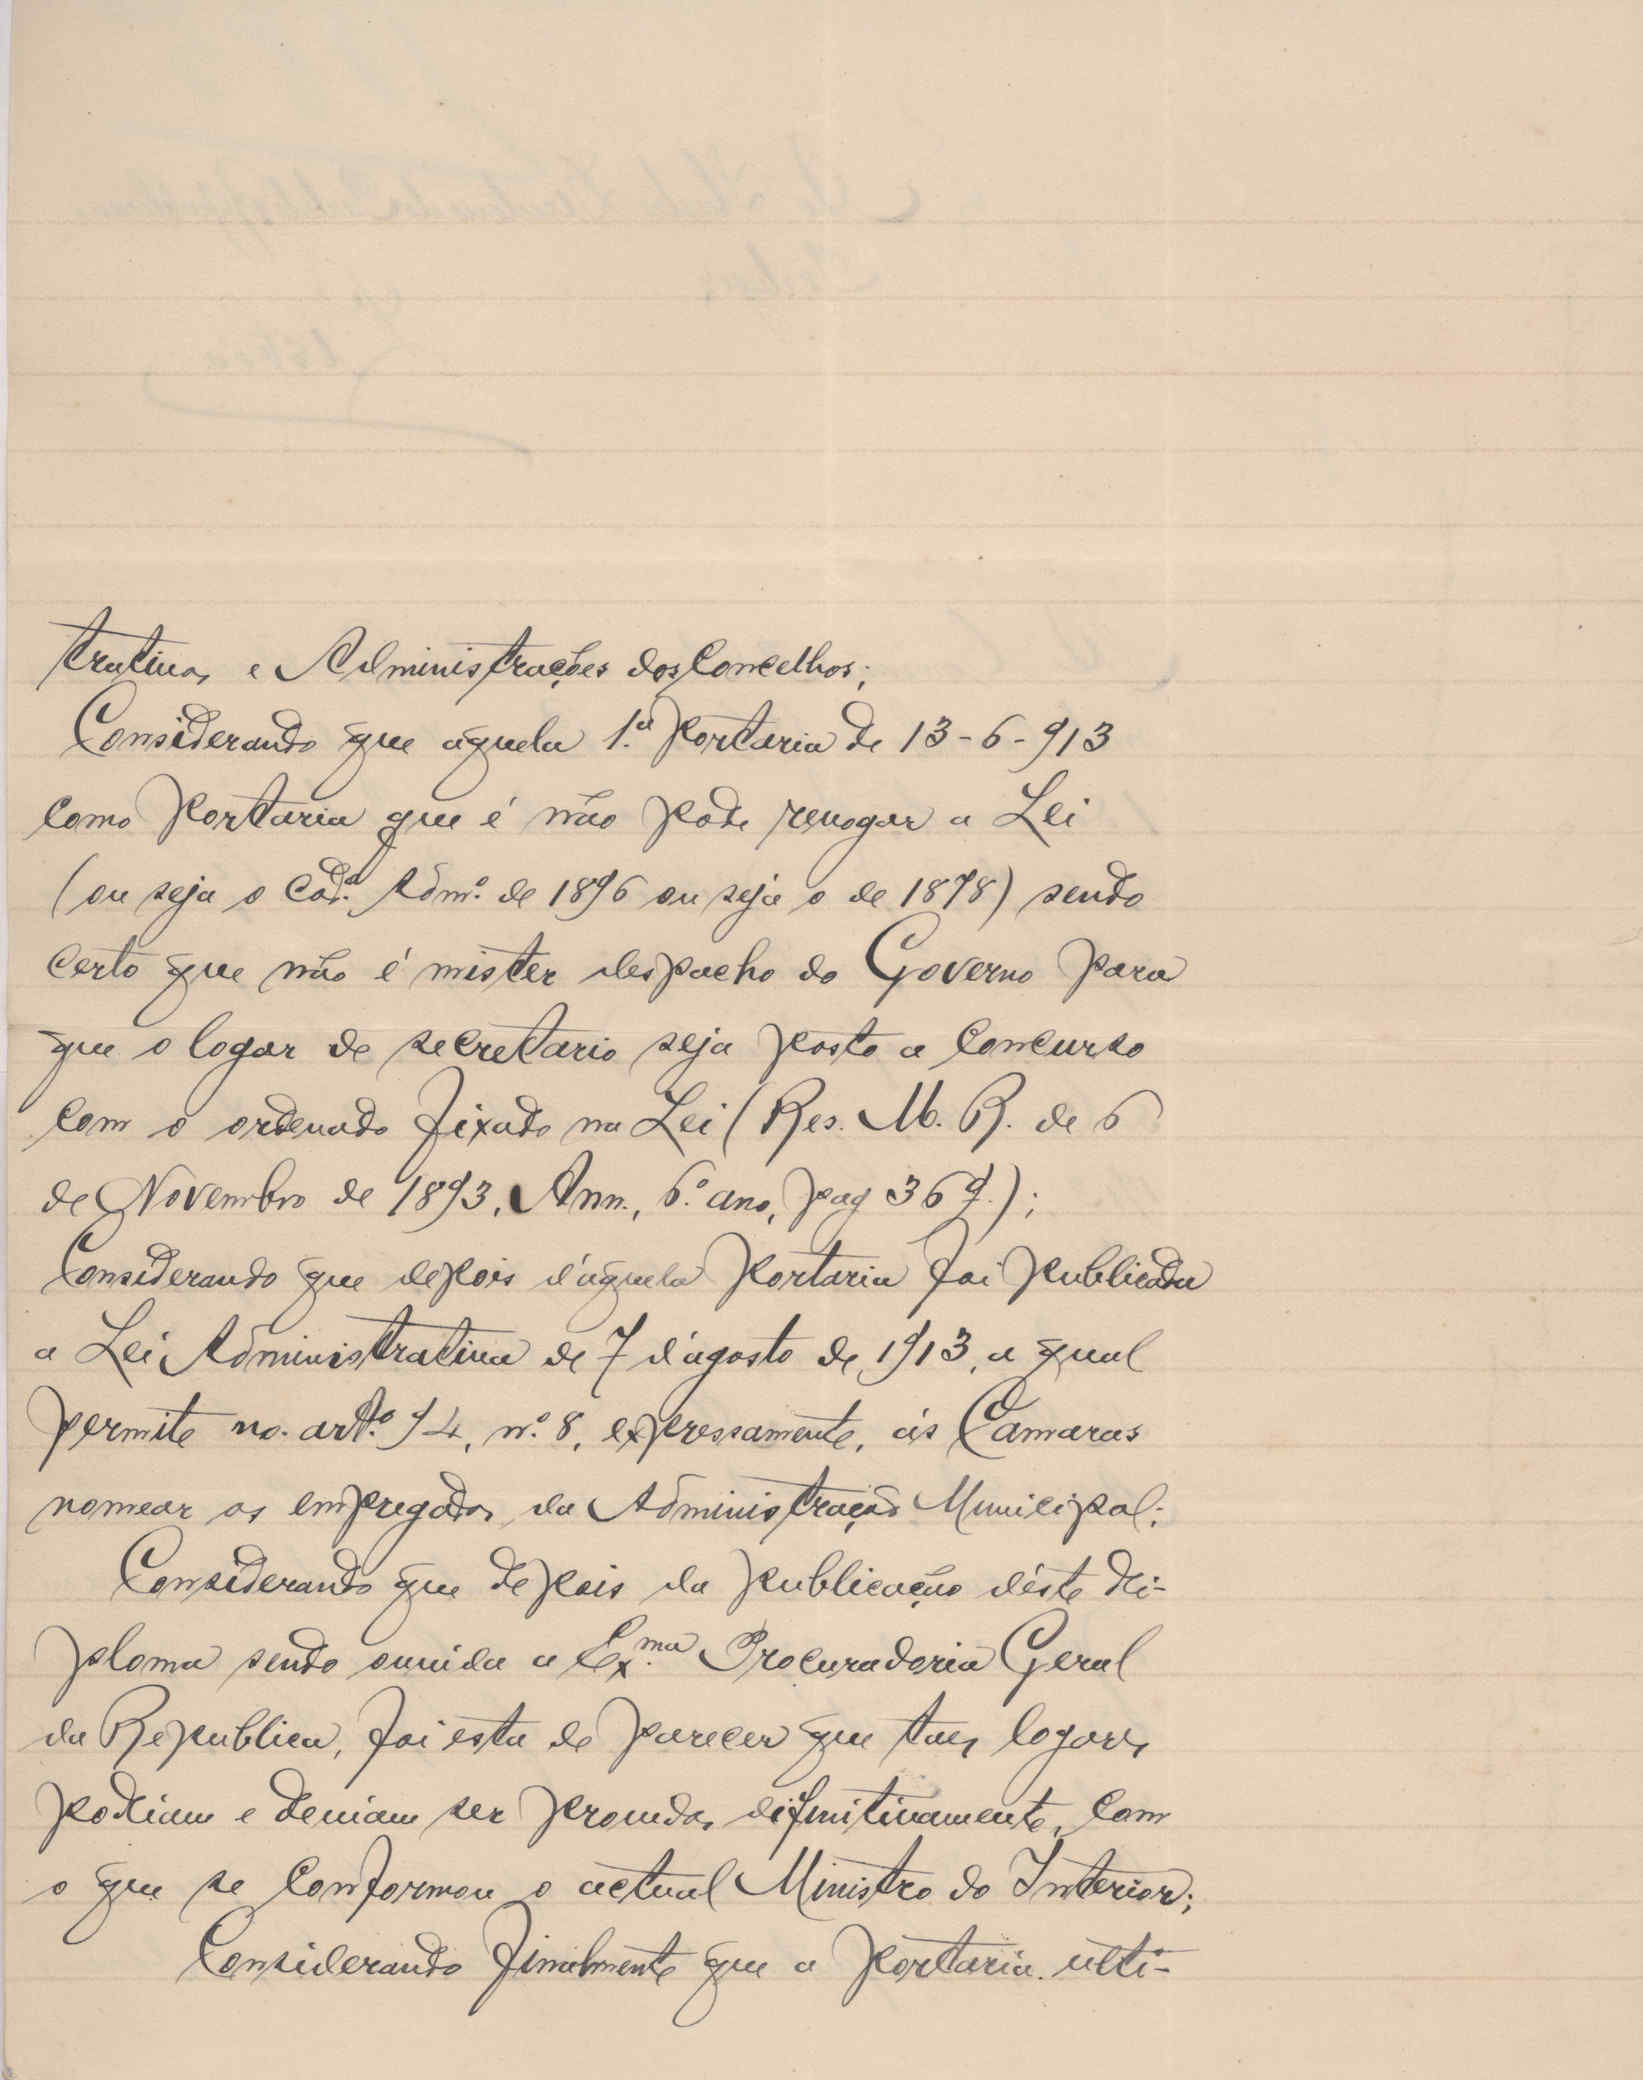 trativas e Administrações dos Concelhos;
Considerando que aquela 1.ª Portaria de 13-6-913
como Portaria que é não pode revogar a Lei
(ou seja o Cod.º Adm.º de 1896 ou seja o de 1878) sendo
certo que não é mister despacho do Governo para
que o logar de secretario seja posto a concurso
com o ordenado fixado na Lei (Res. M. R. de 6
de Novembro de 1893, Ann., 6.º ano, pag 369.);
Considerando que depois d'aquela Portaria foi publicada
a Lei Administrativa de 7 d'agosto de 1913, a qual
permite no. art.º 94, n.º 8, expressamente, ás Camaras
nomear os empregados da Administração Municipal;
Considerando que depois da publicação déste di-
ploma sendo ouvida a Ex.ma Procuradoria Geral
da Republica, foi esta de parecer que taes logares
podiam e deviam ser providos difinitivamente, com
o que se conformou o actual Ministro do Interior;
Considerando finalmente que a Portaria ulti-